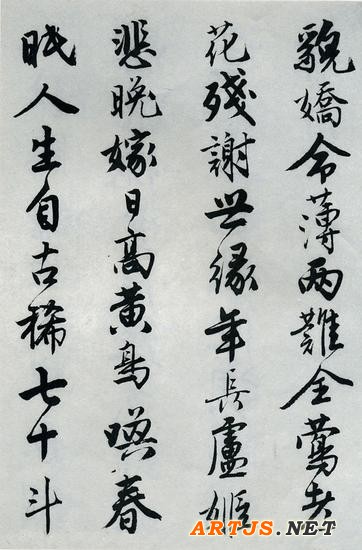 貌嬌命薄兩難全鶯老
花殘謝世緣年長盧姬
悲晚嫁日高黃鳥喚春
眠人生自古稀七十斗
ARTJS.NET